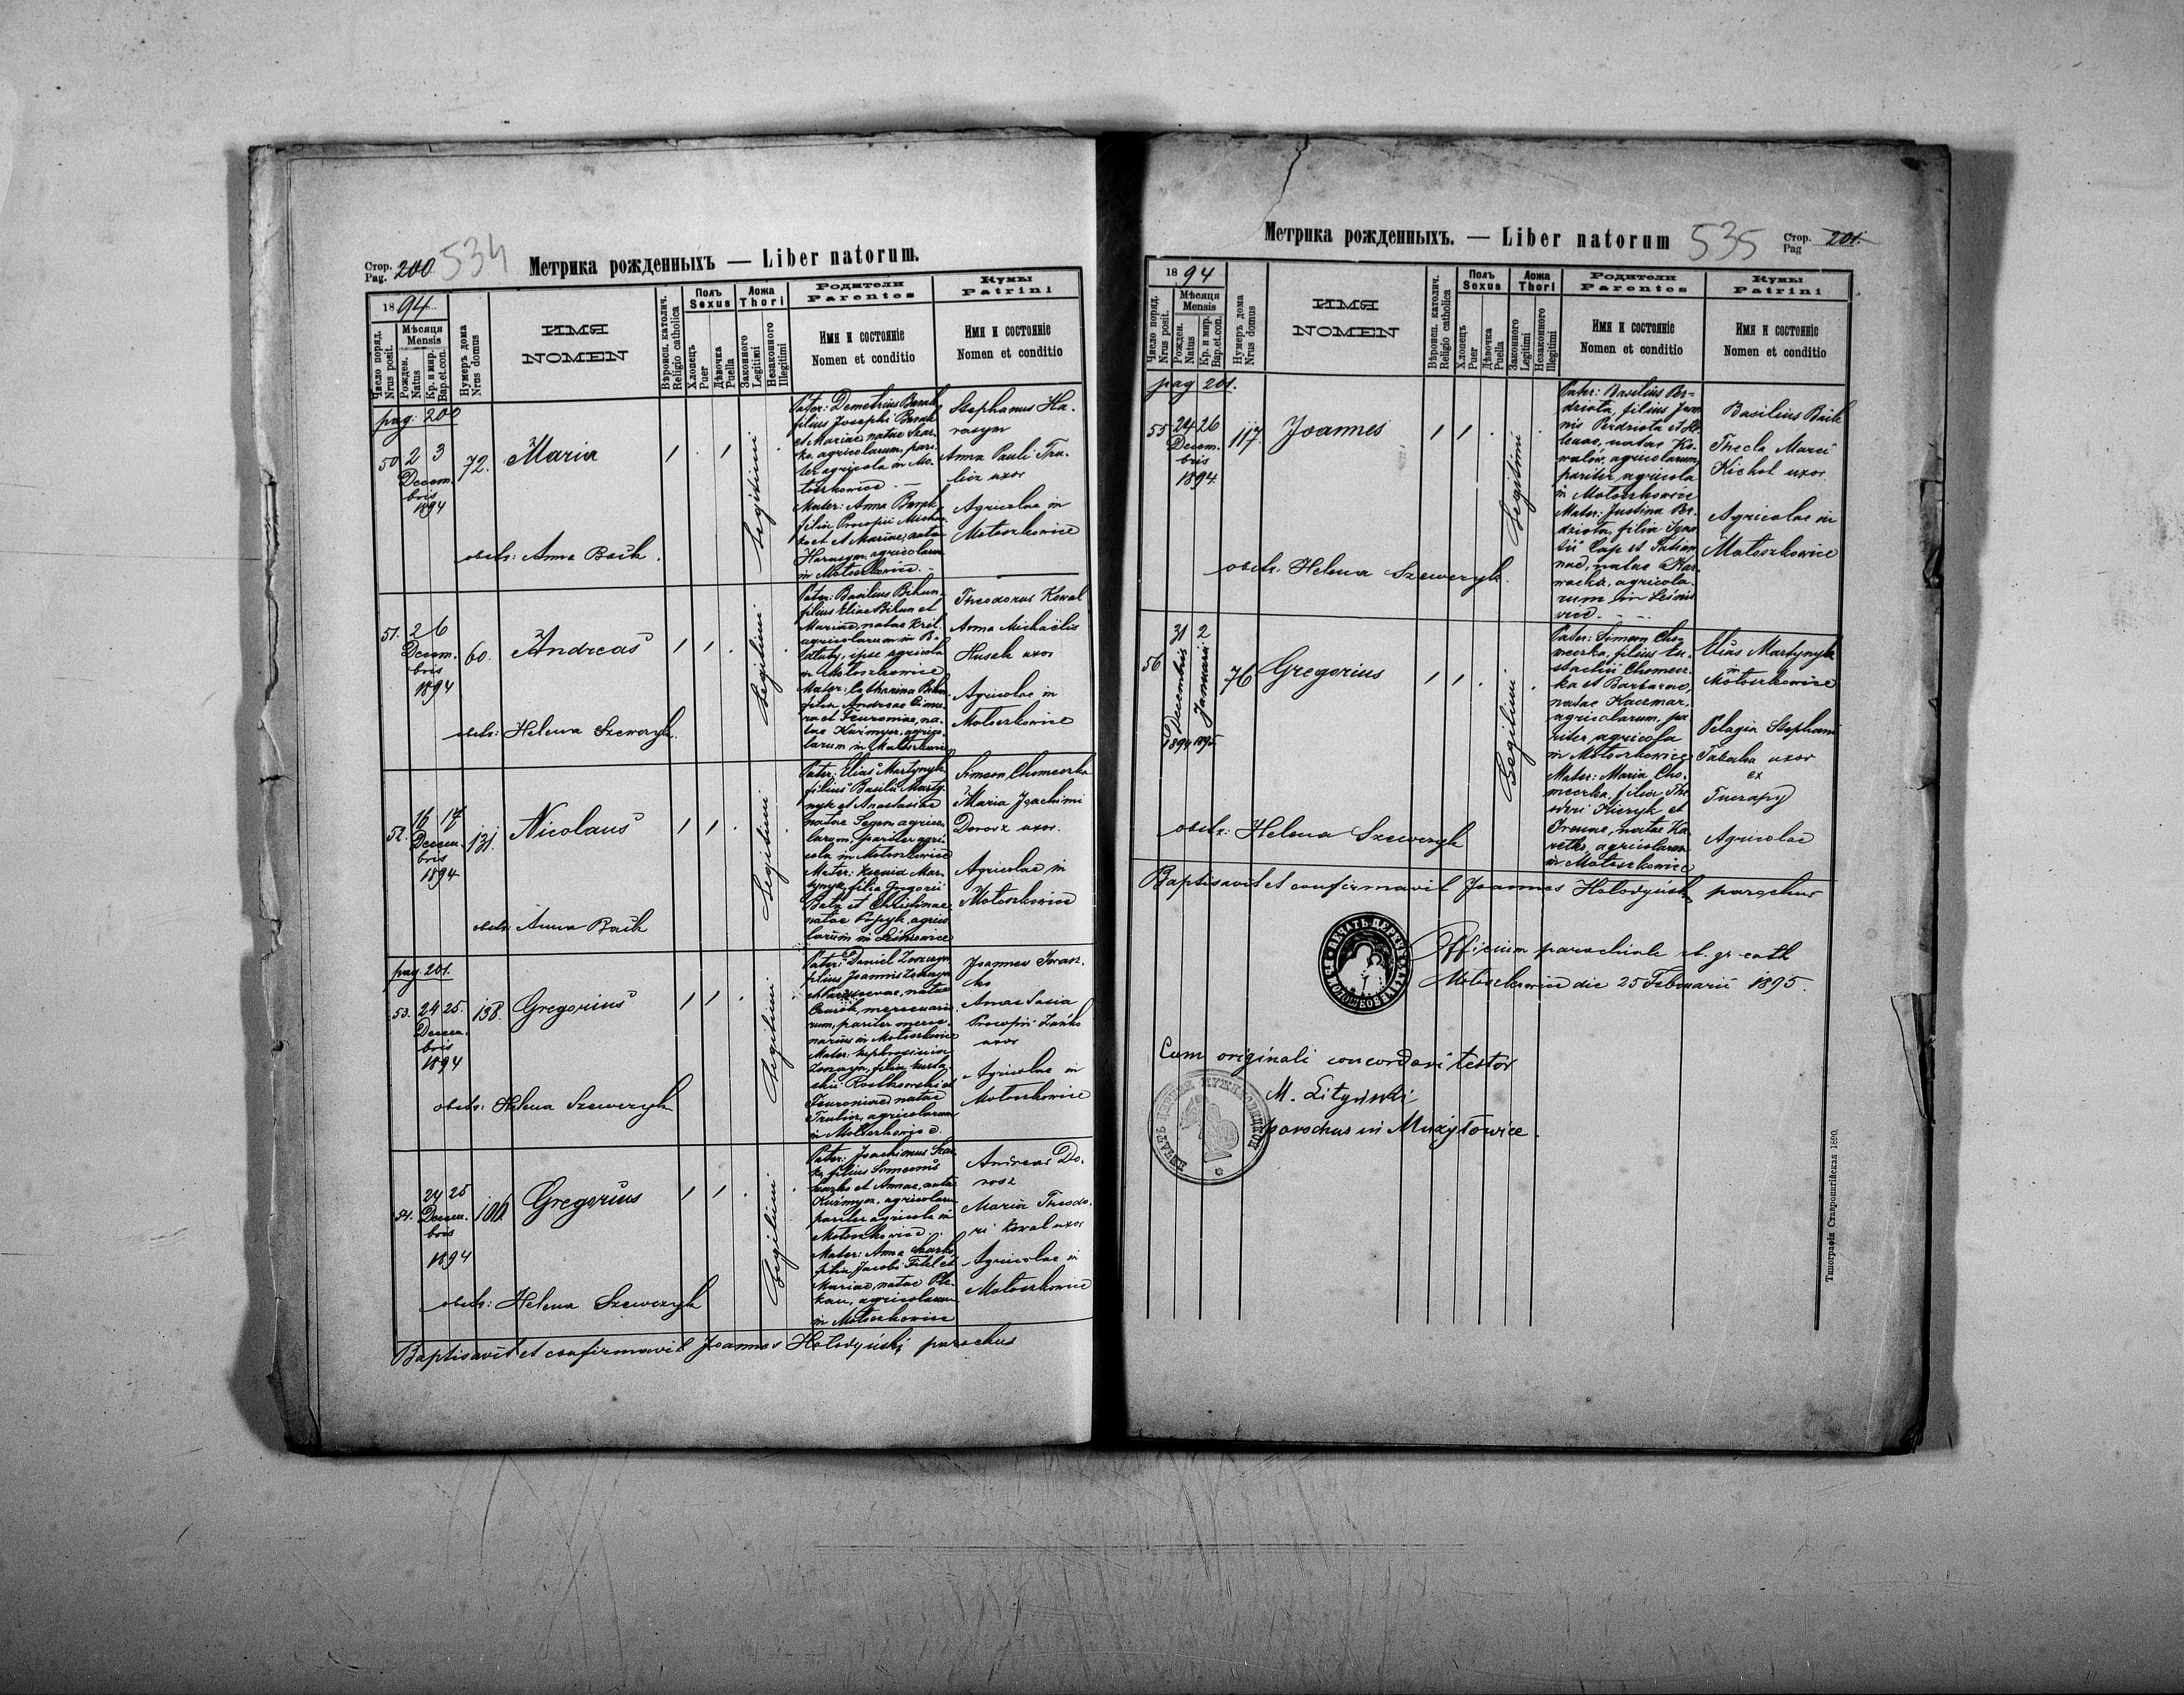 Стор.
Pag. 200. 534
Метрика рожденныхъ — Liber natorum.
1894
Число поряд.
Nrus posit.
Мѣсяця
Mensis
Рожден.
Natus
Кр. и мир.
Bap. et con.
Нумеръ дома
Nrus domus
ИМЯ
NOMEN
Вѣроисп. католич.
Religio catholica
Полъ
Sexus
Хлопець
Puer
Дѣвочка
Puella
Ложа
Thori
Законного
Legitimi
Незаконного
Illegitimi
Родители
Parentes
Имя и состояніе
Nomen et conditio
Кумы
Patrini
Имя и состояніе
Nomen et conditio
pag: 200
50 2 3
Decem-
bris
1894
72.
Maria
Legitimi
obstr: Anna Baik.
Pater: Demetrius
filius Josephi
et Mariae, natae Skar-
ko, agricolarum, pari-
ter agricola in Mo-
loszkowice. —
Mater: Anna
filia Procopii
et Mariae, natae
Harasym, agricolarum
in Moloszkowice. —
Stephanus Ha-
rasym
Anna Pauli Tru-
licz uxor
Agricolae in
Moloszkowice
51. 2 6
Decem-
bris
1894
60.
Andreas
Legitimi
obstr: Helena Szewczyk.
Pater: Basilius Bihun,
filius Eliae Bihun et
Mariae, natae
agricolarum in
ipse agricola
in Moloszkowice
Mater: Catharina Bihun
filia Andreae
et Feuroniae, na-
tae Kuźmycz, agrico-
larum in Moloszkowice
Theodorus Kowal
Anna Michaëlis
Husak uxor
Agricolae in
Moloszkowice
52. 16 17
Decem-
bris
1894
131.
Nicolaus
Legitimi
obstr: Anna Baik
Pater: Elias Martynyk,
filius Basilii Marty-
nyk et Anastasiae
natae Segen agrico-
larum, pariter agri-
cola in Moloszkowice
Mater: Ksenia Mar-
tynyk, filia Gregorii
et Christinae,
natae agrico-
larum in Leśniowice
Simeon Chomeczka
Maria Joachimi
Dorosz uxor.
Agricolae in
Moloszkowice
pag. 201.
53. 24 25.
Decem-
bris
1894
138.
Gregorius
Legitimi
obstr: Helena Szewczyk
Pater: Daniel
filius Joannis
natae
mercenario-
rum, pariter merce-
narius in Moloszkowice
Mater:
filia
et
Feuroniae natae
Trulicz, agricolarum
in Moloszkowice.
Joannes Iwasz-
ko
Anastasia
Procopii
uxor
Agricolae in
Moloszkowice
54. 24 25
Decem-
bris
1894
106
Gregorius
Legitimi
obstr: Helena Szewczyk
Pater: Joachimus Skar-
ko, filius Simeonis
Skarko et Annae, natae
Kuźmycz, agricolarum
pariter agricola in
Moloszkowice.
Mater: Anna Skarko,
filia Jacobi Fitel et
Mariae, natae Ple-
kan, agricolarum
in Moloszkowice
Andreas Do-
rosz
Maria Theodo-
ri Kowal uxor
Agricolae in
Moloszkowice
Baptisavit et confirmavit Joannes Hołodyński parochus
Метрика рожденныхъ. — Liber natorum 535
Стор.
Pag 201.
1894
Число поряд.
Nrus posit.
Мѣсяця
Mensis
Рожден.
Natus
Кр. и мир.
Bap. et. con.
Нумеръ дома
Nrus domus
ИМЯ
NOMEN
Вѣроисп. католич.
Religio catholica
Полъ
Sexus
Хлопець
Puer
Дѣвочка
Puella
Ложа
Thori
Законного
Legitimi
Незаконного
Illegitimi
Родители
Parentes
Имя и состояніе
Nomen et conditio
Кумы
Patrini
Имя и состояніе
Nomen et conditio
pag 201.
55 24 26
Decem-
bris
1894
117.
Joannes
Legitimi
obstr. Helena Szewczyk.
Pater: Basilius Per-
dziota, filius Joan-
nis Perdziota et He-
lenae, natae Ko-
walów, agricolarum,
pariter agricola
in Moloszkowice
Mater: Justina Per-
dziota, filia Igna-
tii Cap et Tatian-
nae, natae
agricola-
rum in Leśnio-
wice. —
Basilius Baik
Thecla Marci
Kichol uxor
Agricolae in
Moloszkowice
56 31 2
Decembris Januarii
1894 1895
76
Gregorius
Legitimi
obstr: Helena Szewczyk
Pater: Simeon Cho-
meczka, filius Eu-
stachii Chomecz-
ka et Barbarae,
natae Kaczmar,
agricolarum, pa-
riter agricola
in Moloszkowice
Mater: Maria Cho-
meczka, filia The-
odori Kiczyk et
Irenae, natae
agricolarum
in Moloszkowice
Elias Martynyk
in
Moloszkowice
Pelagia Stephani
Tabaka uxor
ex
Tuczapy
Agricolae
Baptisavit et confirmavit Joannes Hołodyński parochus
Officium parochiale rt. gr. cath
Moloszkowice die 25 Februarii 1895.
Cum originali concordari testor
M. Lityński
parochus in Mużyłowice.
Типографія Ставропигійская 1890.